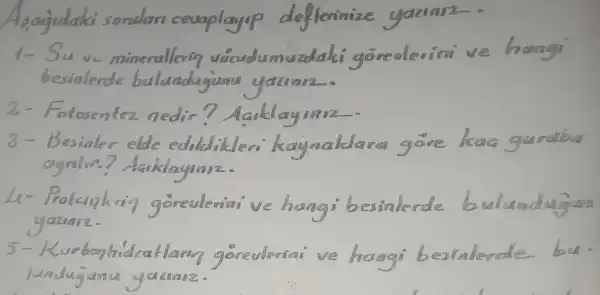 Aşağıdaki soruları cevaplayıp defterinize yazınız.
1- Su ve minerallerin vücudumuzdaki görevlerini ve hangi
besinlerde bulunduğunu yazınız.
2- Fotosentez nedir? Açıklayınız.
3- Besinler elde edildikleri kaynaklara göre kaç guruba
ayrılır? Açıklayınız.
4- Proteinlerin görevlerini ve hangi besinlerde bulunduğunu
yazınız.
5- Karbonhidratların görevlerini ve hangi besinlerde bu-
lunduğunu yazınız.